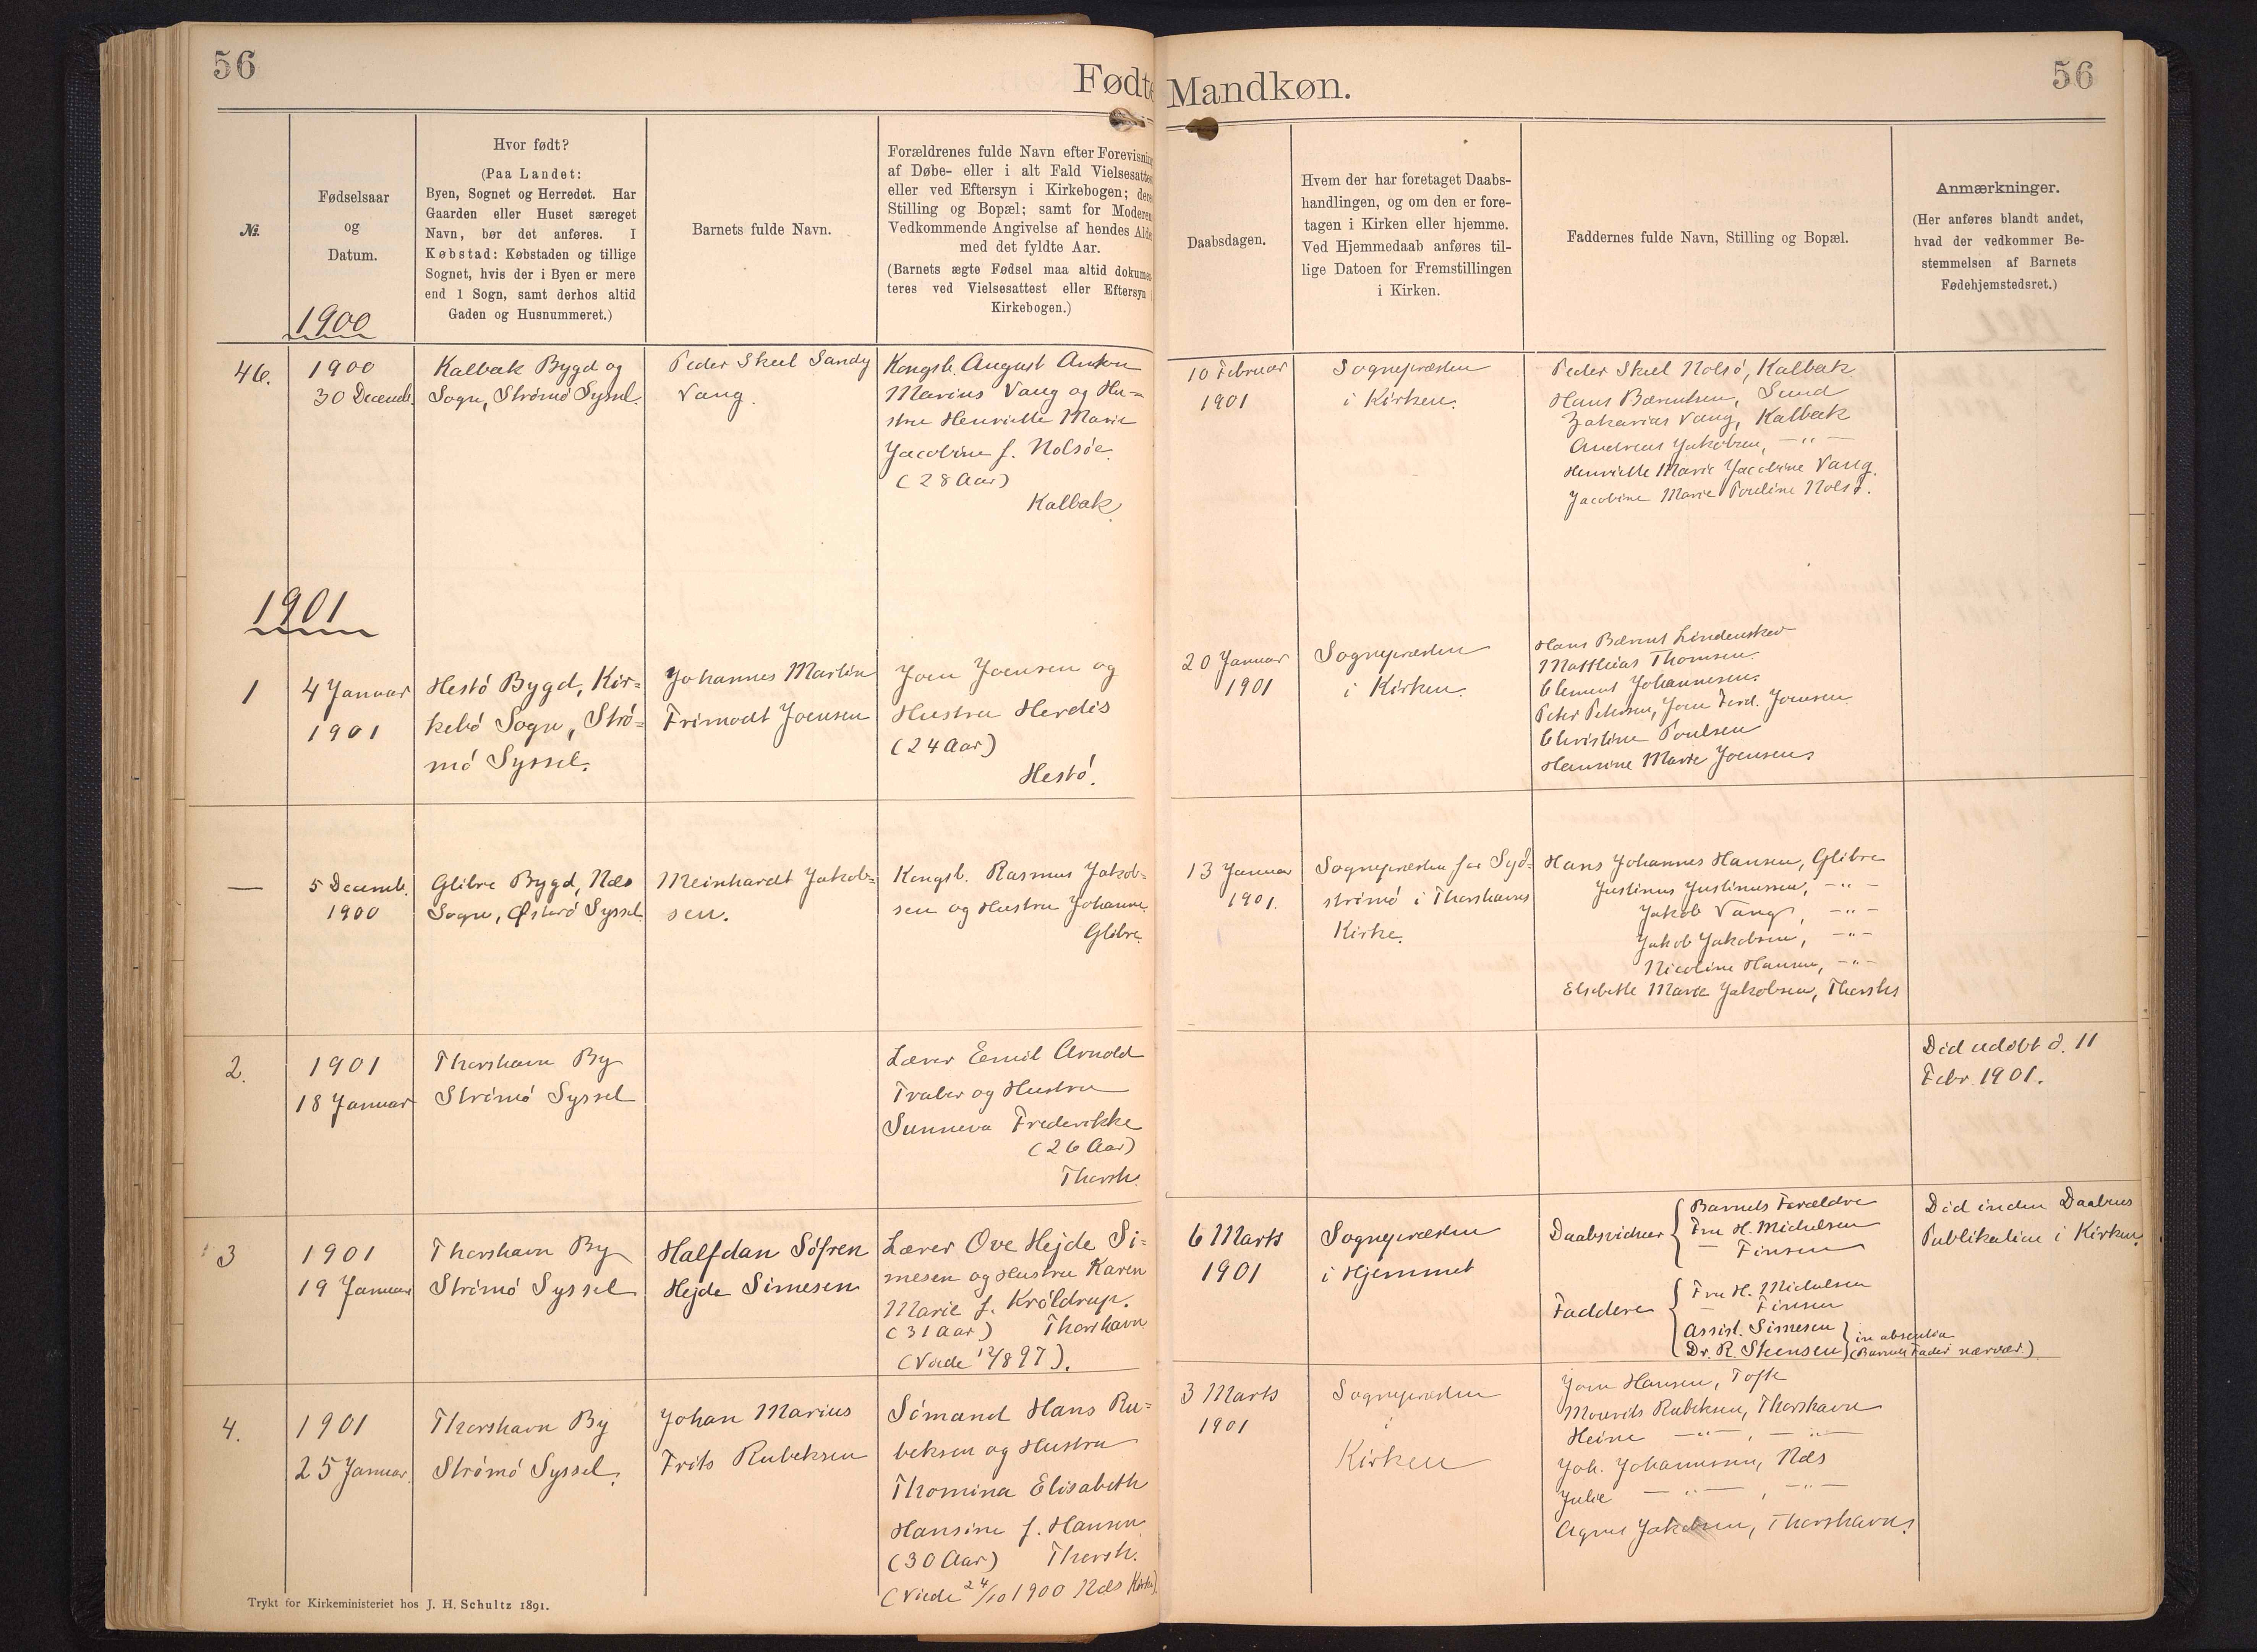 56
Fødte Mandkøn.
56
№.
Fødselsaar
og
Datum.
1900
Hvor født?
(Paa Landet:
Byen, Sognet og Herredet. Har
Gaarden eller Huset særeget
Navn, bør det anføres. I
Købstad: Købstaden og tillige
Sognet, hvis der i Byen er mere
end 1 Sogn, samt derhos altid
Gaden og Husnummeret.)
Barnets fulde Navn.
Forældrenes fulde Navn efter Forevisning
af Døbe- eller i alt Fald Vielsesattest
eller ved Eftersyn i Kirkebogen; deres
Stilling og Bopæl; samt for Moderens
Vedkommende Angivelse af hendes Alder
med det fyldte Aar.
(Barnets ægte Fødsel maa altid dokumen-
teres ved Vielsesattest eller Eftersyn i
Kirkebogen.)
Daabsdagen.
Hvem der har foretaget Daabs-
handlingen, og om den er fore-
tagen i Kirken eller hjemme.
Ved Hjemmedaab anføres til-
lige Datoen for Fremstillingen
i Kirken.
Faddernes fulde Navn, Stilling og Bopæl.
Anmærkninger.
(Her anføres blandt andet,
hvad der vedkommer Be-
stemmelsen af Barnets
Fødehjemstedsret.)
46.
1900
30 Decemb.
Kalbak Bygd og
Sogn, Strømø Syssel.
Peder Skeel Sandy
Vang.
Kongsb. August Anton
Marius Vang og Hu-
stru Henriette Marie
Jacobine f. Nolsøe.
(28 Aar)
Kalbak
10 Februar
1901
Sognepræsten
i Kirken.
Peder Skeel Nolsø, Kalbak
Hans Bærentsen, Sund
Zakarias Vang, Kalbak
Andreas Jakobsen, — " —
Henriette Marie Jacobine Vang.
Jacobine Marie Pouline Nolsø.
1901
1
4 Januar
1901
Hestø Bygd, Kir-
kebø Sogn, Strø-
mø Syssel.
Johannes Martin
Frimodt Joensen
Joen Joensen og
Hustru Herdis
(24 Aar)
Hestø.
20 Januar
1901
Sognepræsten
i Kirken.
Hans Bærent Lindenskov
Matthias Thomsen.
Clement Johannesen.
Peter Petersen, Joen Ferd. Joensen.
Christine Poulsen
Hansine Marie Joensen.
—
5 Decemb.
1900
Glibre Bygd, Næs
Sogn, Østerø Syssel
Meinhardt Jakob-
sen.
Kongsb. Rasmus Jakob-
sen og Hustru Johanne.
Glibre.
13 Januar
1901.
Sognepræsten for Syd-
strømø i Thorshavns
Kirke.
Hans Johannes Hansen, Glibre
Justinus Justinussen, — " —
Jakob Vang, — " —
Jakob Jakobsen, — " —
Nicoline Hansen, — " —
Elsebeth Marie Jakobsen, Thorsh.
2.
1901
18 Januar
Thorshavn By
Strømø Syssel
Lærer Emil Arnold
Traber og Hustru
Sunneva Frederikke
(26 Aar)
Thorsh.
Død udøbt d. 11
Febr. 1901.
3
1901
19 Januar
Thorshavn By
Strømø Syssel
Halfdan Søfren
Hejde Simesen
Lærer Ove Hejde Si-
mesen og Hustru Karen
Marie f. Krøldrup.
(31 Aar) Thorshavn
(Viede 12/8 97).
6 Marts
1901
Sognepræsten
i Hjemmet
Daabsvidner
Barnets Forældre
Fru H. Michelsen
— Finsen
Faddere
Fru H. Michelsen
— Finsen
Assist. Simesen
Dr. R. Steensen
in absentia
(Barnets Fader nærvær.)
Død inden Daabens
Publikation i Kirken.
4.
1901
25 Januar.
Thorshavn By
Strømø Syssel.
Johan Marius
Frits Rubeksen
Sømand Hans Ru-
beksen og Hustru
Thomina Elisabeth
Hansine f. Hansen
(30 Aar) Thorsh.
(Viede 24/10 1900 Næs Kirke).
3 Marts
1901
Sognepræsten
i
Kirken
Joen Hansen, Tofte
Mourits Rubeksen, Thorshavn
Heine — " — , — " —
Joh. Johannesen, Næs
Julie — " — , — " —
Agnes Jakobsen, Thorshavn.
Trykt for Kirkeministeriet hos J. H. Schultz 1891.